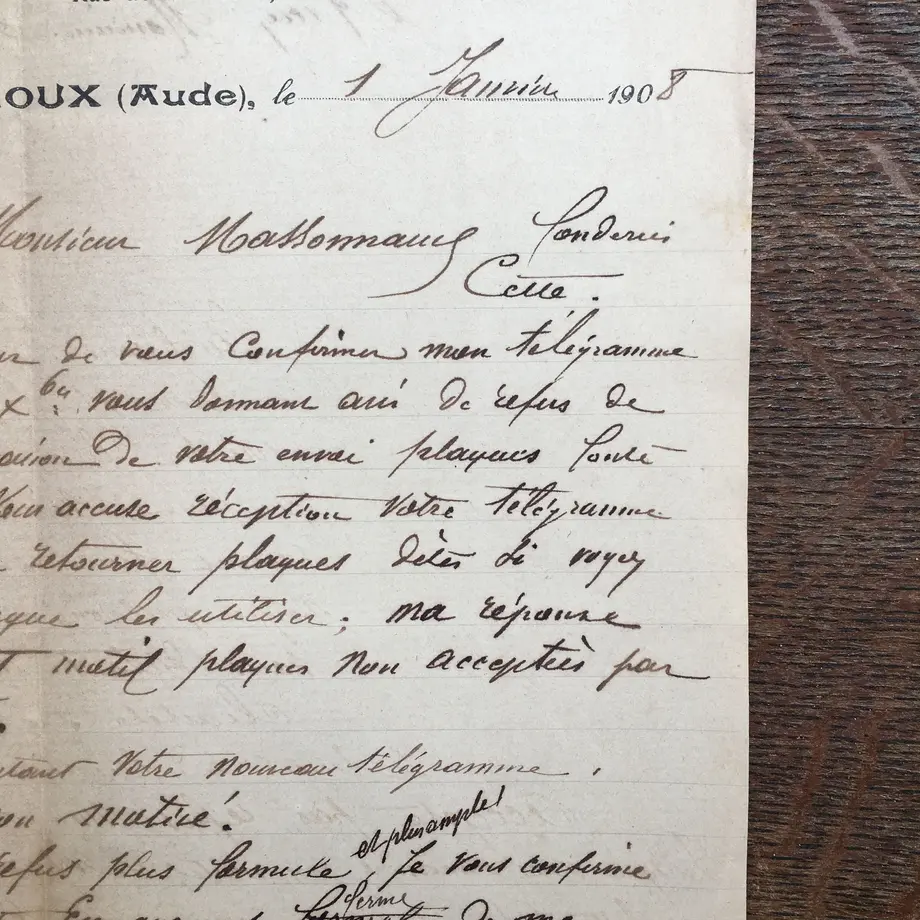 OUX (Aude), le 1 Janvier 1908
Monsieur Massonnaud
Cette.
de vous confirmer mon télégramme
Xbre vous donnant avis de refus de
de votre envoi plaques fonte
Vous accuse réception votre télégramme
retourner plaques dêtes si voyez
les utiliser; ma réponse
motif plaques non acceptées par
votre nouveau télégramme.
on motivé.
refus plus formule et plus ample! Je vous confirme
ferme
de me